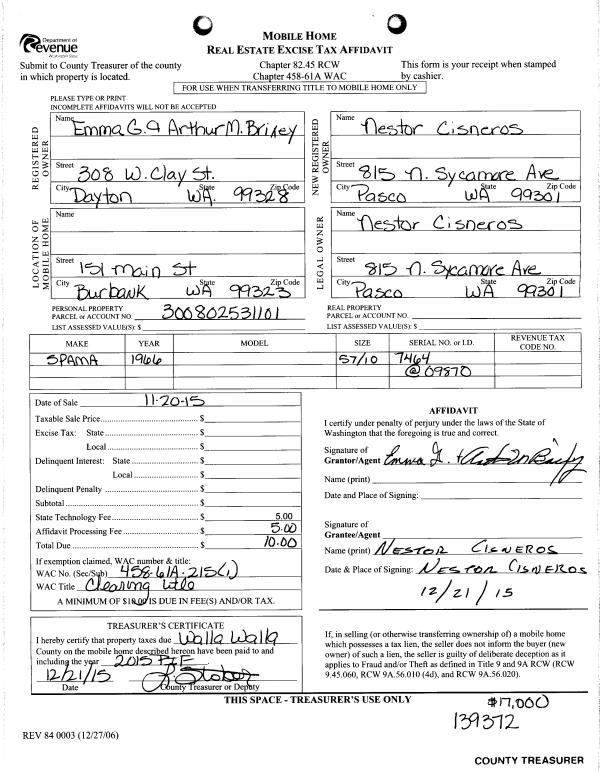 Department of
Revenue
Washington State
MOBILE HOME
REAL ESTATE EXCISE TAX AFFIDAVIT
Submit to County Treasurer of the county
in which property is located.
Chapter 82.45 RCW
Chapter 458-61A WAC
This form is your receipt when stamped
by cashier.
FOR USE WHEN TRANSFERRING TITLE TO MOBILE HOME ONLY
PLEASE TYPE OR PRINT
INCOMPLETE AFFIDAVITS WILL NOT BE ACCEPTED
REGISTERED OWNER
Name Emma G. & Arthur M. Briley
Street 308 W. Clay St.
City Dayton State WA. Zip Code 99328
NEW REGISTERED OWNER
Name Nestor Cisneros
Street 815 N. Sycamore Ave
City Pasco State WA Zip Code 99301
LOCATION OF MOBILE HOME
Name
Street 151 Main St
City Burbank State WA Zip Code 99323
LEGAL OWNER
Name Nestor Cisneros
Street 815 N. Sycamore Ave
City Pasco State WA Zip Code 99301
PERSONAL PROPERTY
PARCEL or ACCOUNT NO. 300802531101
LIST ASSESSED VALUE(S): $
REAL PROPERTY
PARCEL or ACCOUNT NO.
LIST ASSESSED VALUE(S): $
MAKE YEAR MODEL SIZE SERIAL NO. or I.D. REVENUE TAX CODE NO.
SPAMA 1966 57/10 7464
@09870
Date of Sale 11-20-15
Taxable Sale Price $
Excise Tax: State $
Local $
Delinquent Interest: State $
Local $
Delinquent Penalty $
Subtotal $
State Technology Fee $ 5.00
Affidavit Processing Fee $ 5.00
Total Due $ 10.00
If exemption claimed, WAC number & title:
WAC No. (Sec/Sub) 458-61A-215(1)
WAC Title Clearing title
A MINIMUM OF $10.00 IS DUE IN FEE(S) AND/OR TAX.
AFFIDAVIT
I certify under penalty of perjury under the laws of the State of
Washington that the foregoing is true and correct.
Signature of
Grantor/Agent Emma G. +
Name (print)
Date and Place of Signing:
Signature of
Grantee/Agent
Name (print) NESTOR CISNEROS
Date & Place of Signing: NESTOR CISNEROS
12/21/15
TREASURER'S CERTIFICATE
I hereby certify that property taxes due Walla Walla
County on the mobile home described hereon have been paid to and
including the year 2015 PIF
12/21/15
Date County Treasurer or Deputy
If, in selling (or otherwise transferring ownership of) a mobile home
which possesses a tax lien, the seller does not inform the buyer (new
owner) of such a lien, the seller is guilty of deliberate deception as it
applies to Fraud and/or Theft as defined in Title 9 and 9A RCW (RCW
9.45.060, RCW 9A.56.010 (4d), and RCW 9A.56.020).
THIS SPACE - TREASURER'S USE ONLY
$17,000
139372
REV 84 0003 (12/27/06)
COUNTY TREASURER